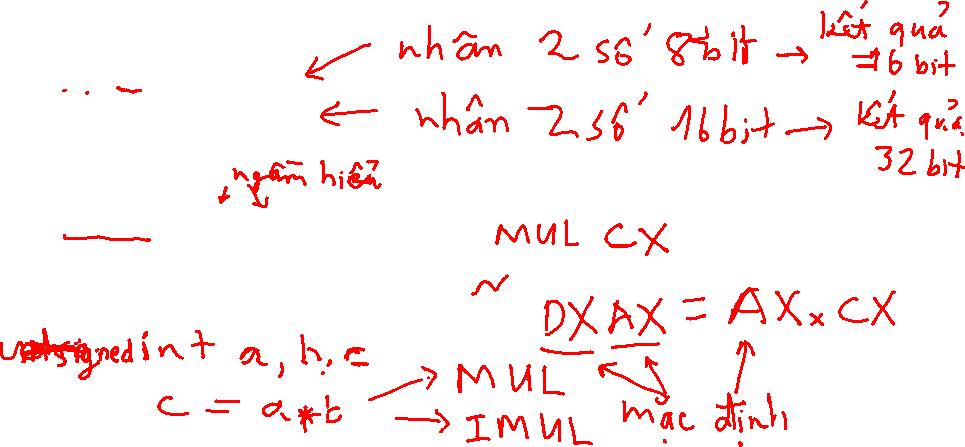 nhân 2 số 8 bit → kết quả
= 16 bit
nhân 2 số 16 bit → kết quả
32 bit
ngầm hiểu
MUL CX
~
DX AX = AX x CX
unsigned int a, b, c
c = a * b → MUL
→ IMUL
mặc định